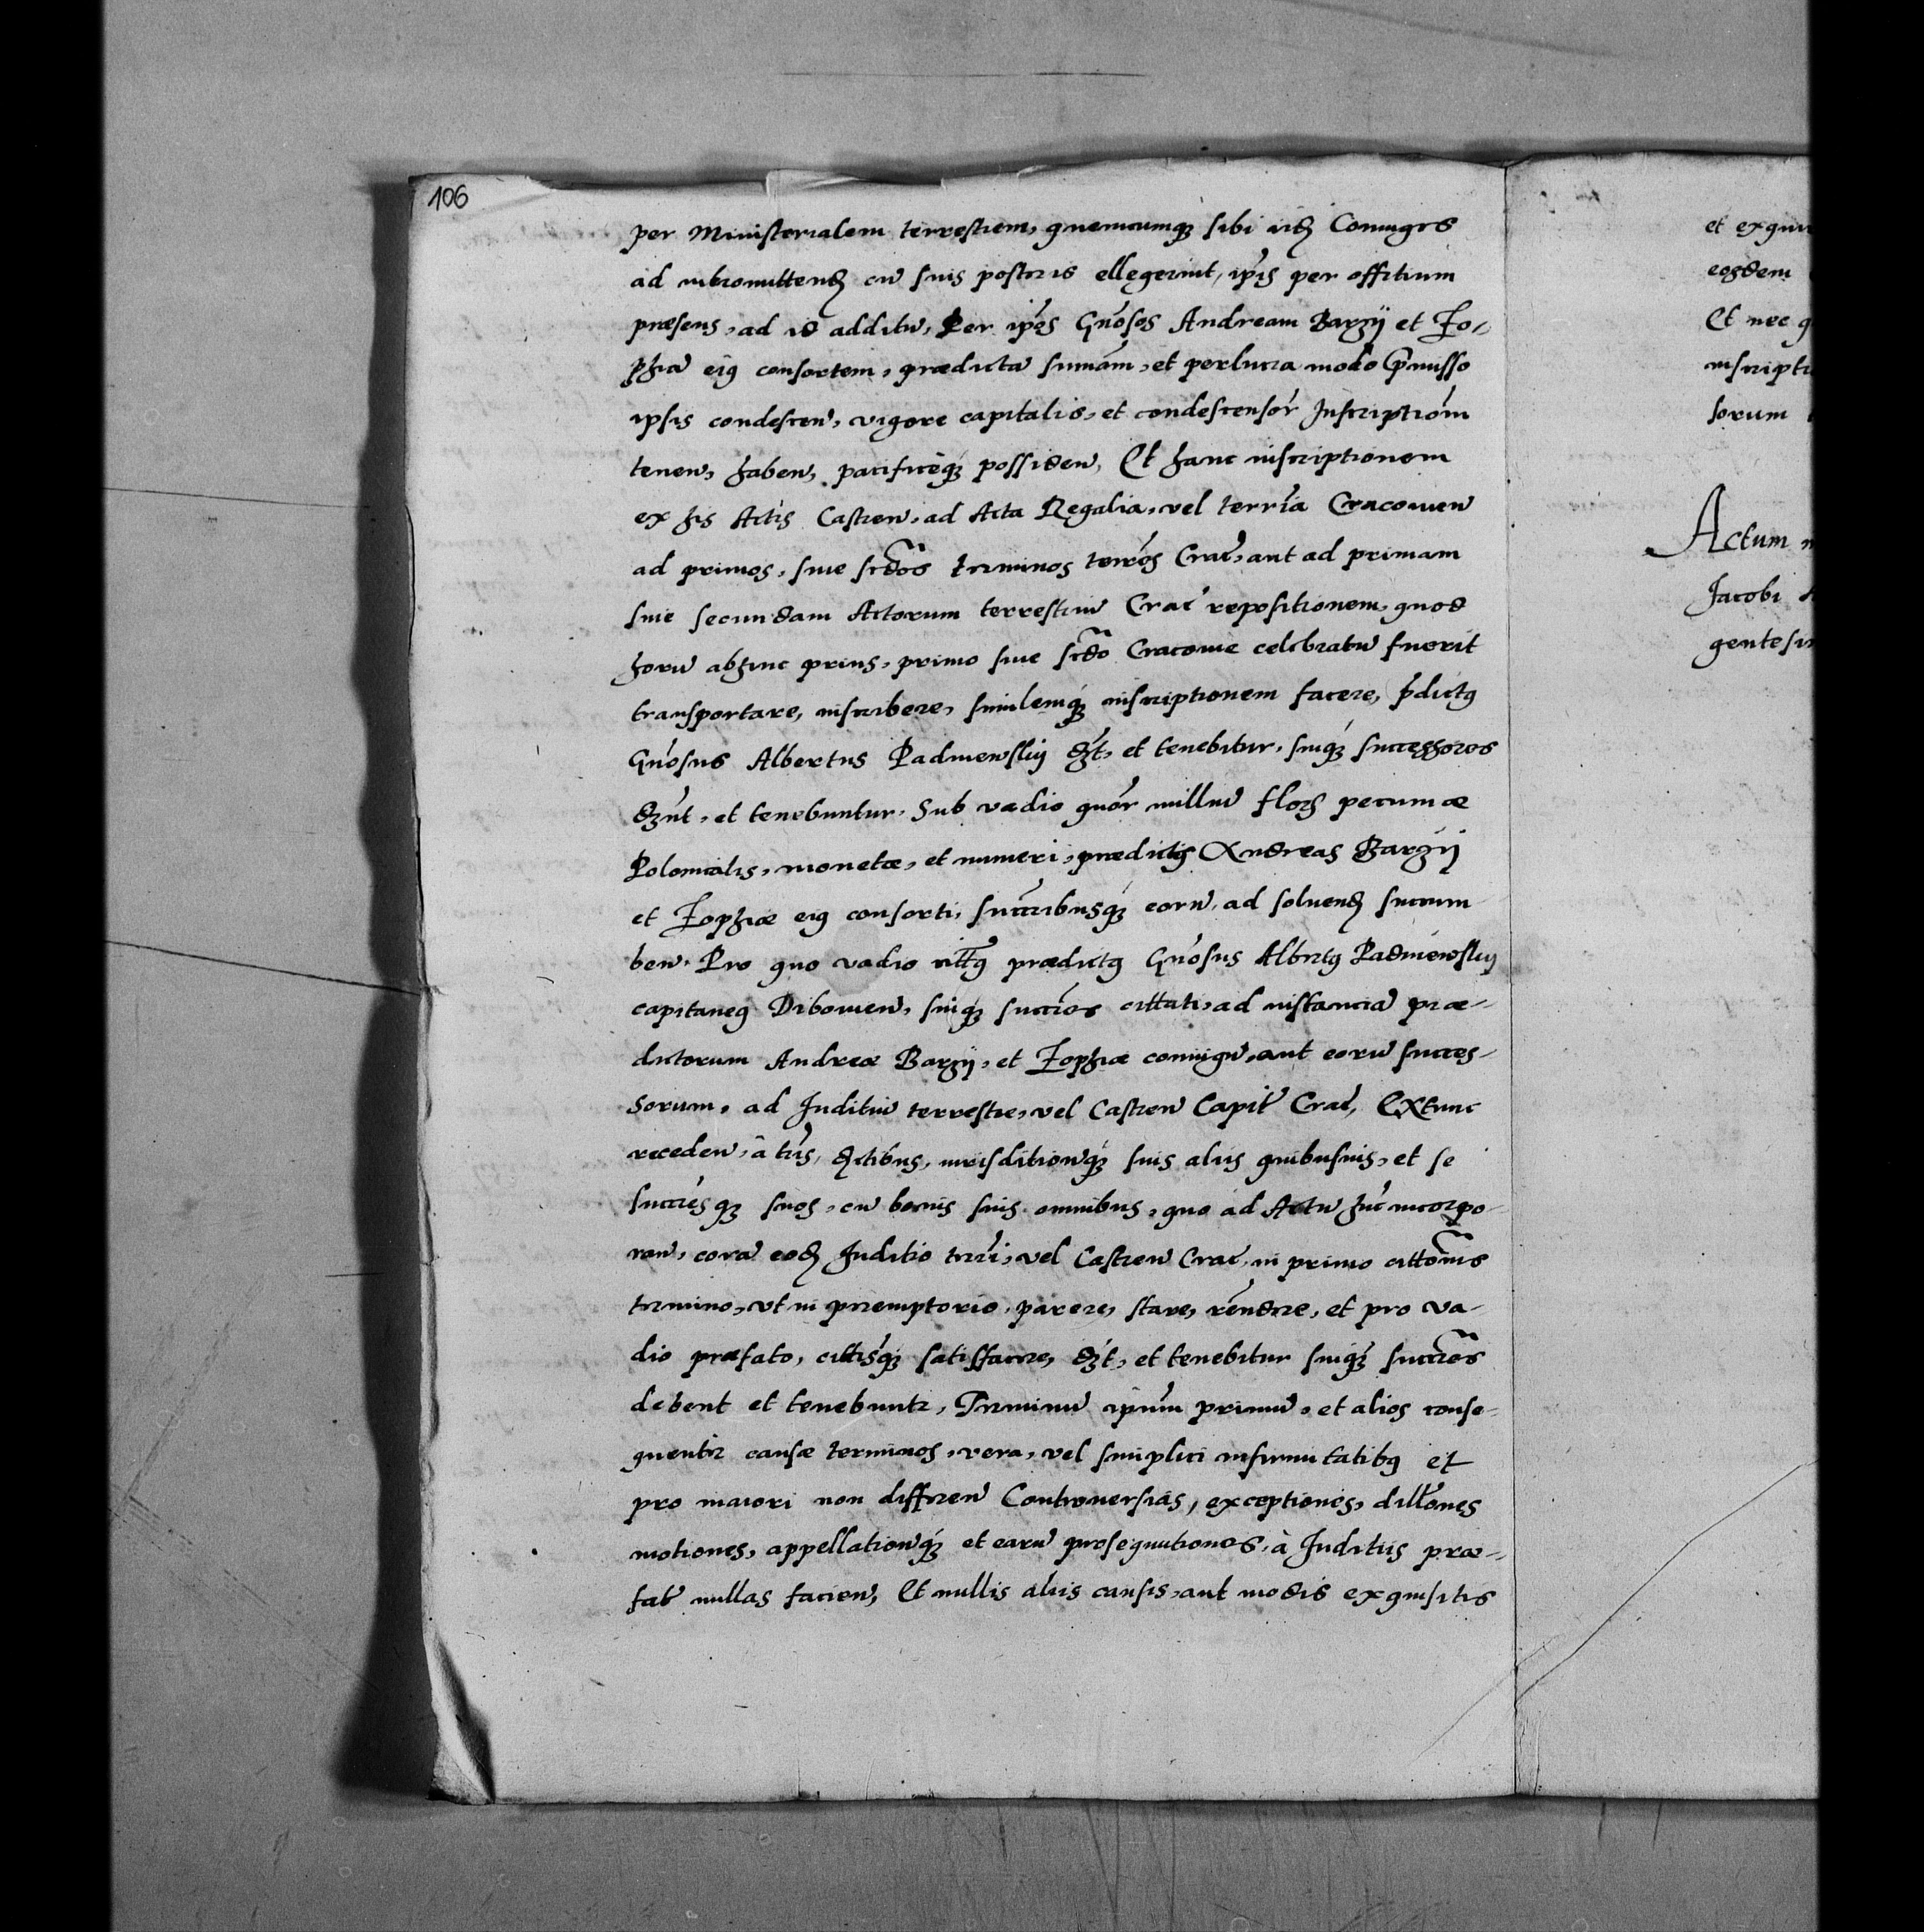 106
per Ministerialem terrestrem, quemcumq; sibi iid Coniuges
ad intromittend cu suis posteris ellegerint, ipis per offitium
præsens, ad id additu, Per ipos Gnosos Andream Barzy et Zo-
phia eig consortem, prædicta sumam, et perlucra modo pmisso
ipsis condescen, vigore capitalis, et condescensor Inscriptiom
tenen, haben, pacificeq; possiden, Et hanc inscriptionem
ex his Actis Castren, ad Acta Regalia, vel terria Cracouien
ad primos, siue scdos terminos terros Crac, aut ad primam
siue secundam Actorum terrestriu Crac repositionem, quod
horu abhinc prius, primo siue scdo Cracouie celebratu fuerit
transportare, inscribere, similemq; inscriptionem facere, pdictg
Gnosus Albertus Padniewsky dzt, et tenebitur, suiq; successores
dznt, et tenebuntur. Sub vadio quor milliu flor pecuniæ
Polonicalis, monetæ, et numeri, prædictis Andreas Barzy
et Zophiæ eig consorti, succribusq; eoru, ad soluend succum
ben. Pro quo vadio cittg prædictg Gnosus Albrtg Padniewsky
capitaneg Dibouien, suiq; succres cittati, ad instancia præ-
dictorum Andreæ Barzy, et Zophiæ coniugu, aut eoru succes-
sorum, ad Juditiu terrestre, vel Castren Capit Crac, Extunc
receden, à tris, dictibus, iurisditionq; suis aliis quibusuis, et se
succresq; suos, cu bonis suis omnibus, quo ad Actu huc incorpo-
ran, cora eod Juditio trri, vel Castren Crac, in primo cittonis
termino, vt in peremptorio, parere, stare, rendre, et pro va-
dio præfato, cittisq; satisfacere, dzt, et tenebitur suiq; succres
debent et tenebuntr, Terminu ipum primu, et alios conse-
quenter causæ terminos, vera, vel simplici infirmitatibg et
pro maiori non differen Controuersias, exceptiones, dillones
motiones, appellationq; et earu prosequutiones, à Juditiis præ-
fat nullas facien, Et nullis aliis causis, aut modis exquisitis
et exqui
eosdem
Et nec q
inscripti
sorum
Actum
Jacobi
gentesi